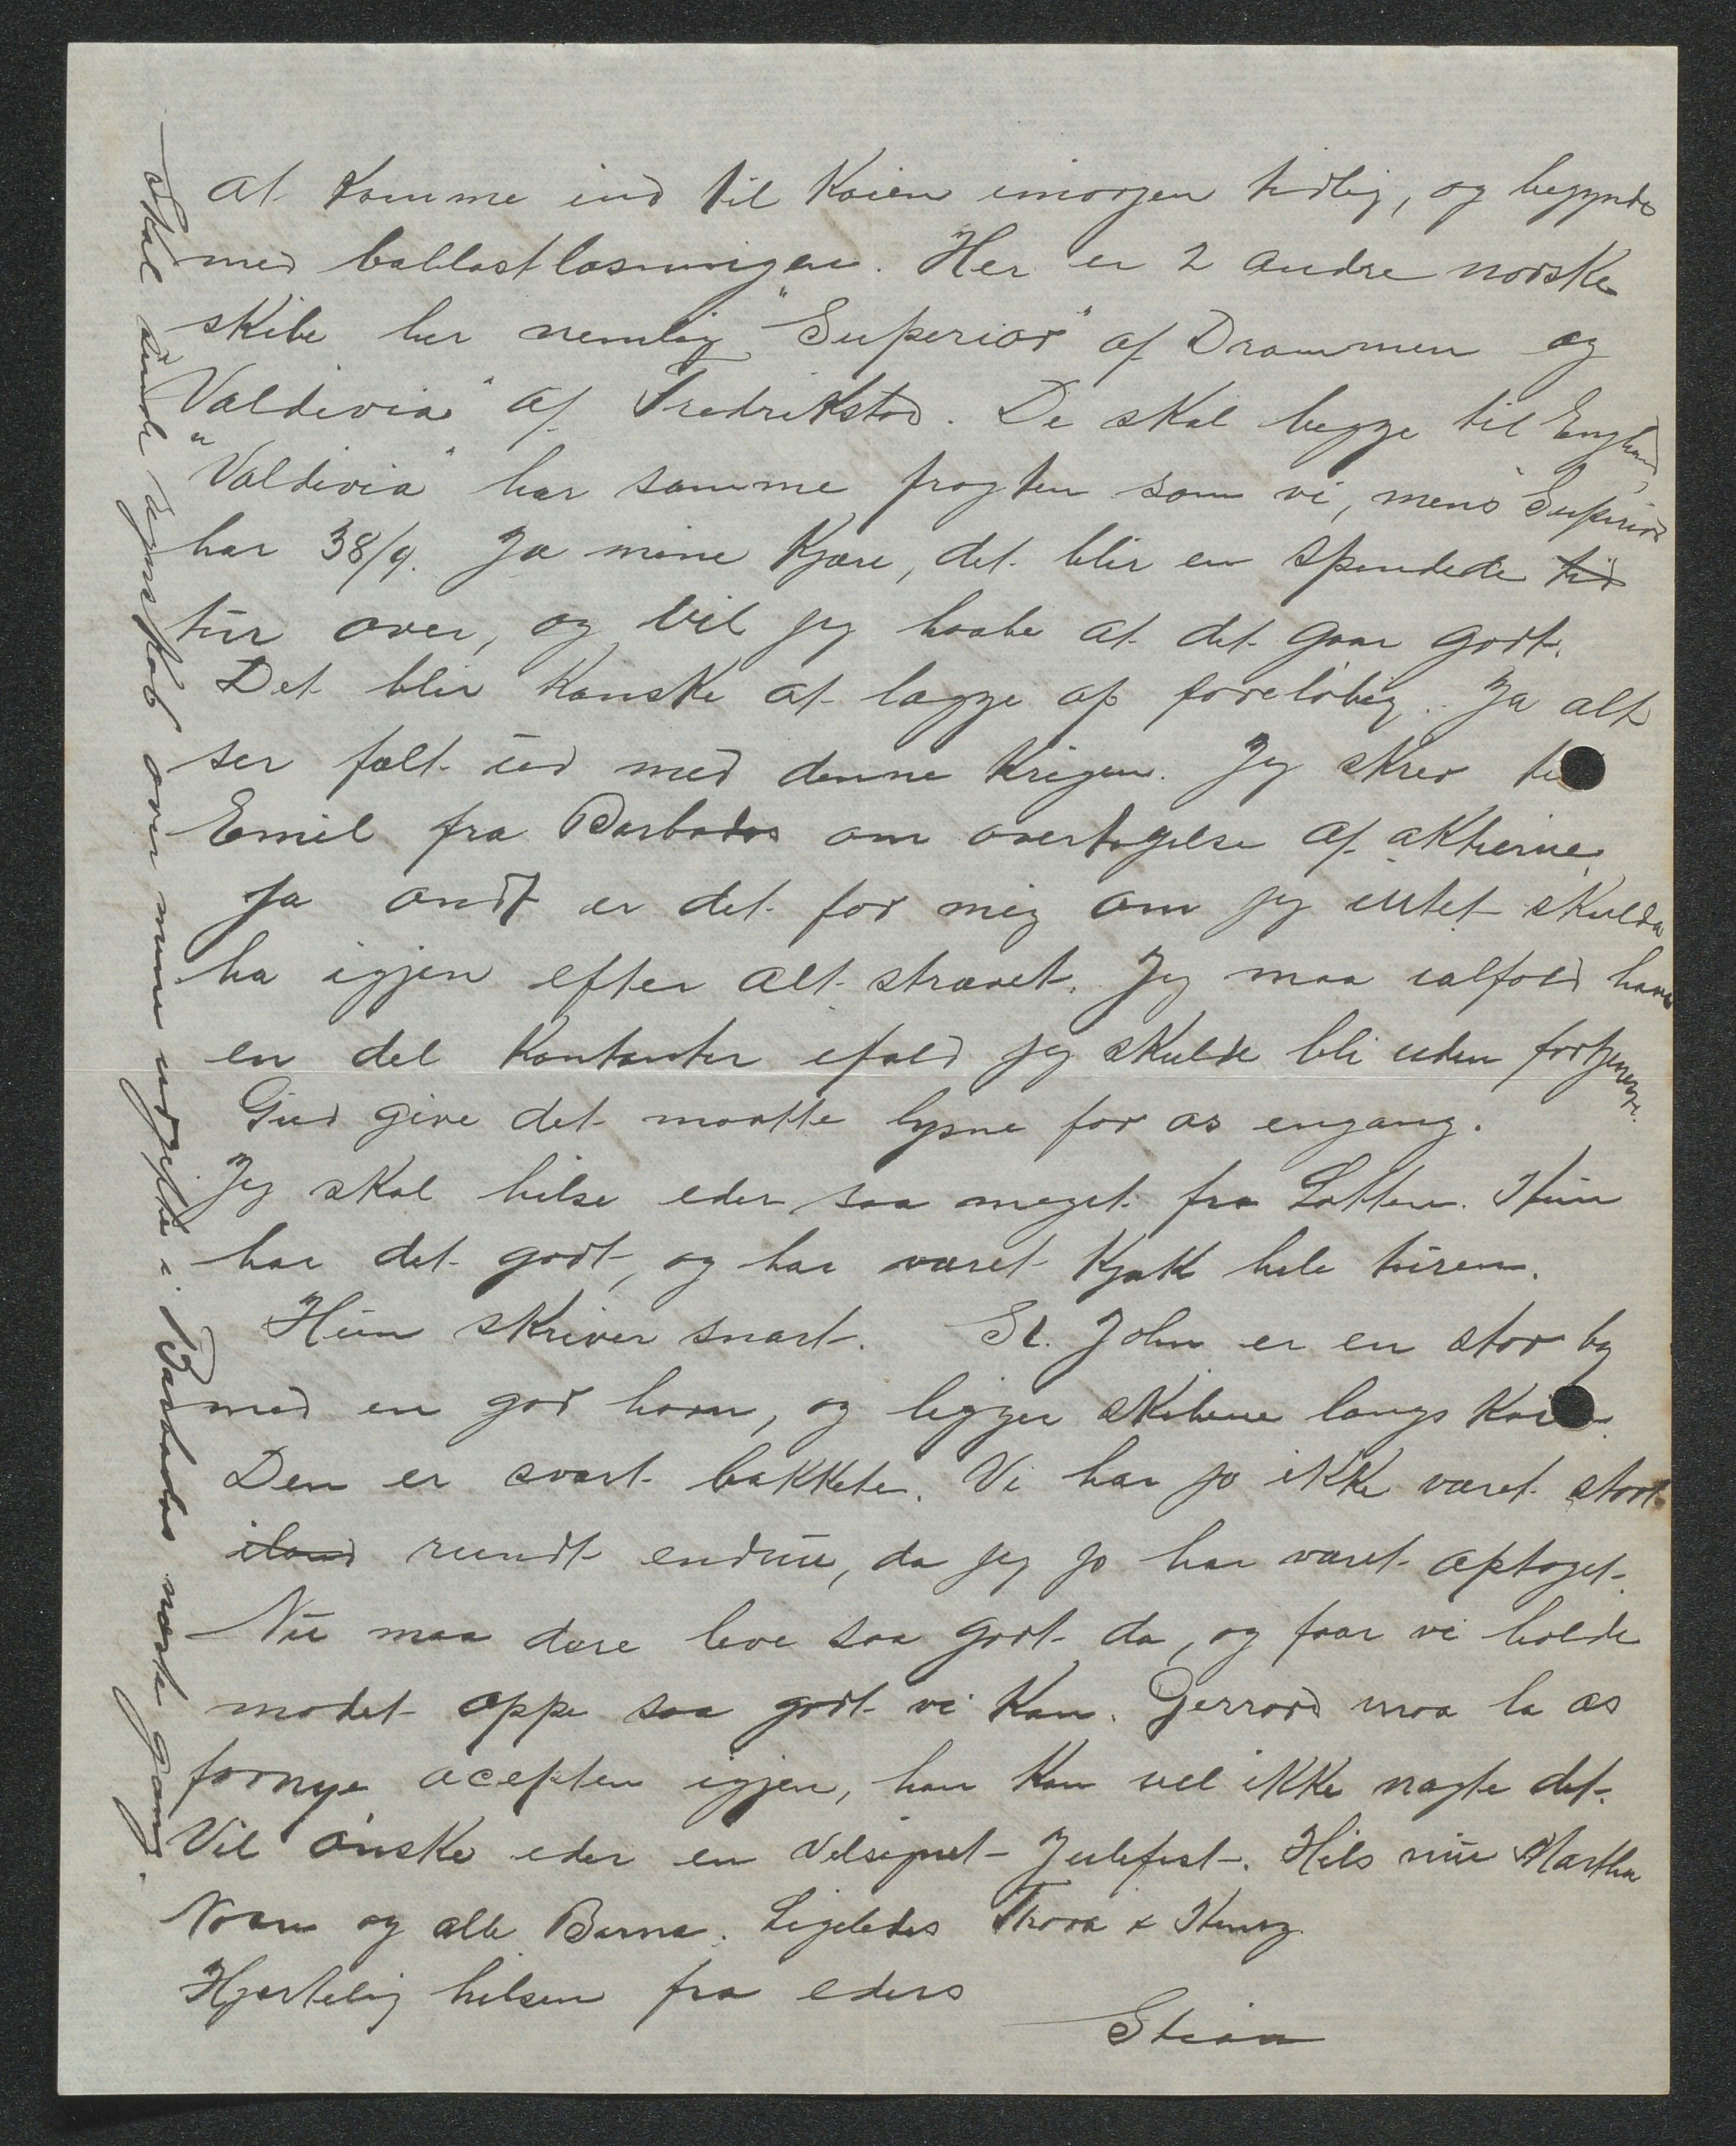 at komme ind til Kaien imorgen tidlig, og begynde
med ballastlosningen. Her er 2 andre norske
skibe her nemlig "Superior" af Drammen og
"Valdivia" af Fredrikstad. De skal begge til England
"Valdivia" har samme fragten som vi, mens "Superior"
har 38/9. Ja mine Kjære, det blir en spendede tid
tur over, og vil jeg haabe at det gaar godt.
Det blir Kanske at lægge op foreløbig. Ja alt
ser fælt ud med denne Krigen. Jeg skrev til
Emil fra Barbados om overtagelse af aktierne
Ja ondt er det for mig om jeg intet skulde
ha igjen efter alt strævet. Jeg maa ialfald have
en del Kontanter ifald jeg skulde bli uden fortjeneste.
Gud give det maatte lysne for os engang.
Jeg skal hilse eder saa meget fra Lotten. Hun
har det godt, og har været Kjæk hele turen.
Hun skriver snart. St. John er en stor by
med en god havn, og ligger skibene langs Kaien.
Den er svært bakkete. Vi har jo ikke været stort
iland rundt endnu, da jeg jo har været optaget.
Nu maa dere leve saa godt da, og faar vi holde
modet oppe saa godt vi Kan. Gerrard maa la os
fornye acepten igjen, han Kan vel ikke nægte det.
Vil ønske eder en velsignet Julefest. Hils nu Martha
og alle Barna. Ligeledes Thora &
Hjertelig hilsen fra eders
Stian
Skal sende regnskab over mine udgifter i Barbados næste gang.